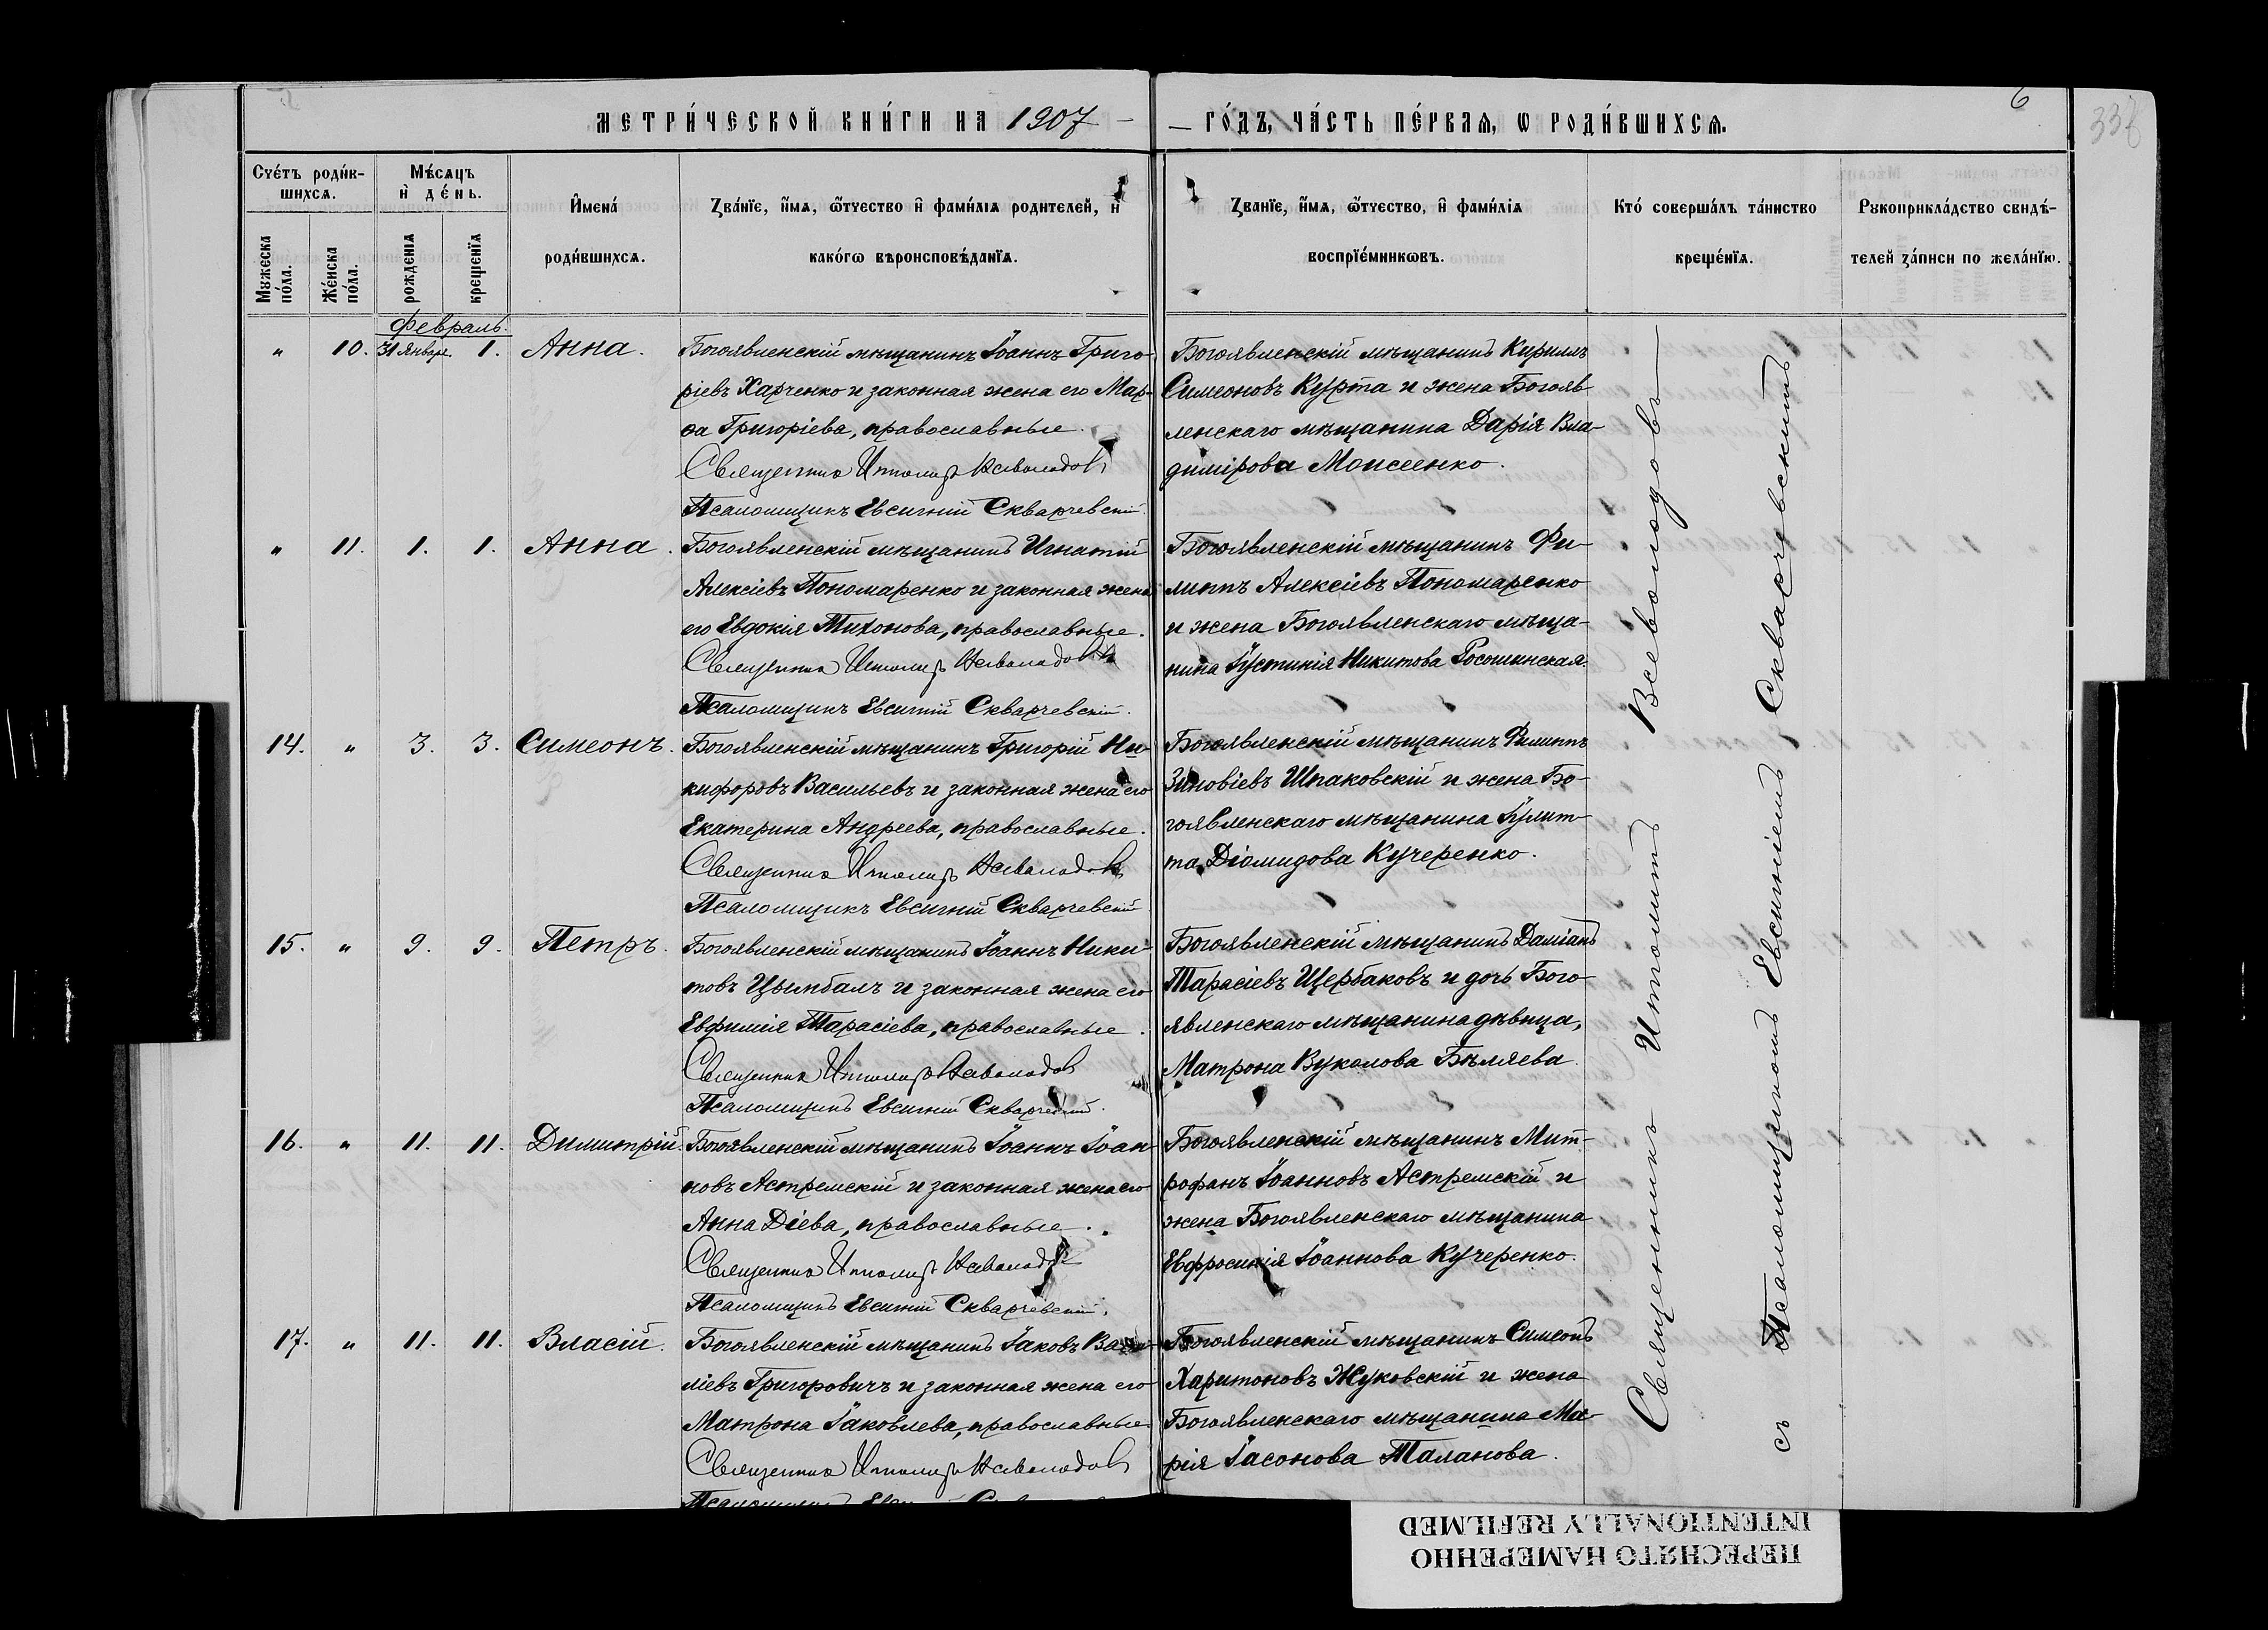 МЕТРИ́ЧЕСКОЙ КНИ́ГИ НА 1907
ГО́ДЪ, ЧА́СТЬ ПЕ́РВАЯ, Ѡ РОДИ́ВШИХСѦ.
6
Сче́тъ роди́в-
шихсѧ.
Мѣ́сѧцъ
и҆ де́нь.
Мꙋжеска
по́ла.
Же́нска
по́ла.
рожденіѧ
крещенїѧ
И҆мена́
роди́вшихсѧ.
Зва́нїе, и҆́мѧ, ѻ҆́тчество и҆ фами́лїѧ родителей, и҆
како́гѡ вѣроисповѣ́данїѧ.
Зва́нїе, и҆́мѧ, ѻ҆́тчество, и҆ фами́лїѧ
воспрїе́мникѡвъ.
Кто́ соверша́лъ та́инство
креще́нїѧ.
Рꙋкоприкла́дство свидѣ́-
телей за́писи по жела́нїю.
Февраль.
" 10. 31 Январ. 1. Анна.
Богоявленскій мѣщанинъ Іоаннъ Григо-
ріевъ Харченко и законная жена его Мар-
ѳа Григоріева, православные.
Священник Ипполит Всеволодов
Псаломщикъ Евсигній Скваржевскій.
Богоявленскій мѣщанинъ Кириллъ
Симеоновъ Курта и жена Богояв-
ленскаго мѣщанина Дарія Вла-
димірова Моисеенко.
" 11. 1. 1. Анна.
Богоявленскій мѣщанинъ Игнатій
Алексіевъ Пономаренко и законная жена
его Евдокія Тихонова, православные.
Священник Ипполит Всеволодов
Псаломщикъ Евсигній Скваржевскій.
Богоявленскій мѣщанинъ Фи-
липпъ Алексіевъ Пономаренко
и жена Богоявленскаго мѣща-
нина Іустинія Никитова Росошинская.
14. " 3. 3. Симеонъ.
Богоявленскій мѣщанинъ Григорій Ни-
кифоровъ Васильевъ и законная жена его
Екатерина Андреева, православные.
Священник Ипполит Всеволодов
Псаломщикъ Евсигній Скваржевскій
Богоявленскій мѣщанинъ Филиппъ
Зиновіевъ Шпаковскій и жена Бо-
гоявленскаго мѣщанина Іулит-
та Діомидова Кучеренко.
15. " 9. 9. Петръ.
Богоявленскій мѣщанинъ Іоаннъ Ники-
товъ Цымбалъ и законная жена его
Евфимія Тарасіева, православные.
Священник Ипполит Всеволодов
Псаломщикъ Евсигній Скваржевскій.
Богоявленскій мѣщанинъ Даміанъ
Тарасіевъ Щербаковъ и дочь Бого-
явленскаго мѣщанина дѣвица,
Матрона Вуколова Бѣляева
16. " 11. 11. Димитрій.
Богоявленскій мѣщанинъ Іоаннъ Іоан-
новъ Астремскій и законная жена его
Анна Діева, православные.
Священник Ипполит Всеволодов
Псаломщикъ Евсигній Скваржевскій.
Богоявленскій мѣщанинъ Мит-
рофанъ Іоанновъ Астремскій и
жена Богоявленскаго мѣщанина
Евфросинія Іоаннова Кучеренко.
17. " 11. 11. Власій.
Богоявленскій мѣщанинъ Іаковъ
ліевъ Григоровичъ и законная жена его
Матрона Іаковлева, православные
Священник Ипполит Всеволодов
Богоявленскій мѣщанинъ Симеонъ
Харитоновъ Жуковскій и жена
Богоявленскаго мѣщанина Ма-
рія Іасонова Таланова.
Священникъ Ипполитъ Всеволодовъ
съ Псаломщикомъ Евсигніемъ Скваржевскимъ
ПЕРЕСНЯТО НАМЕРЕННО
INTENTIONALLY REFILMED